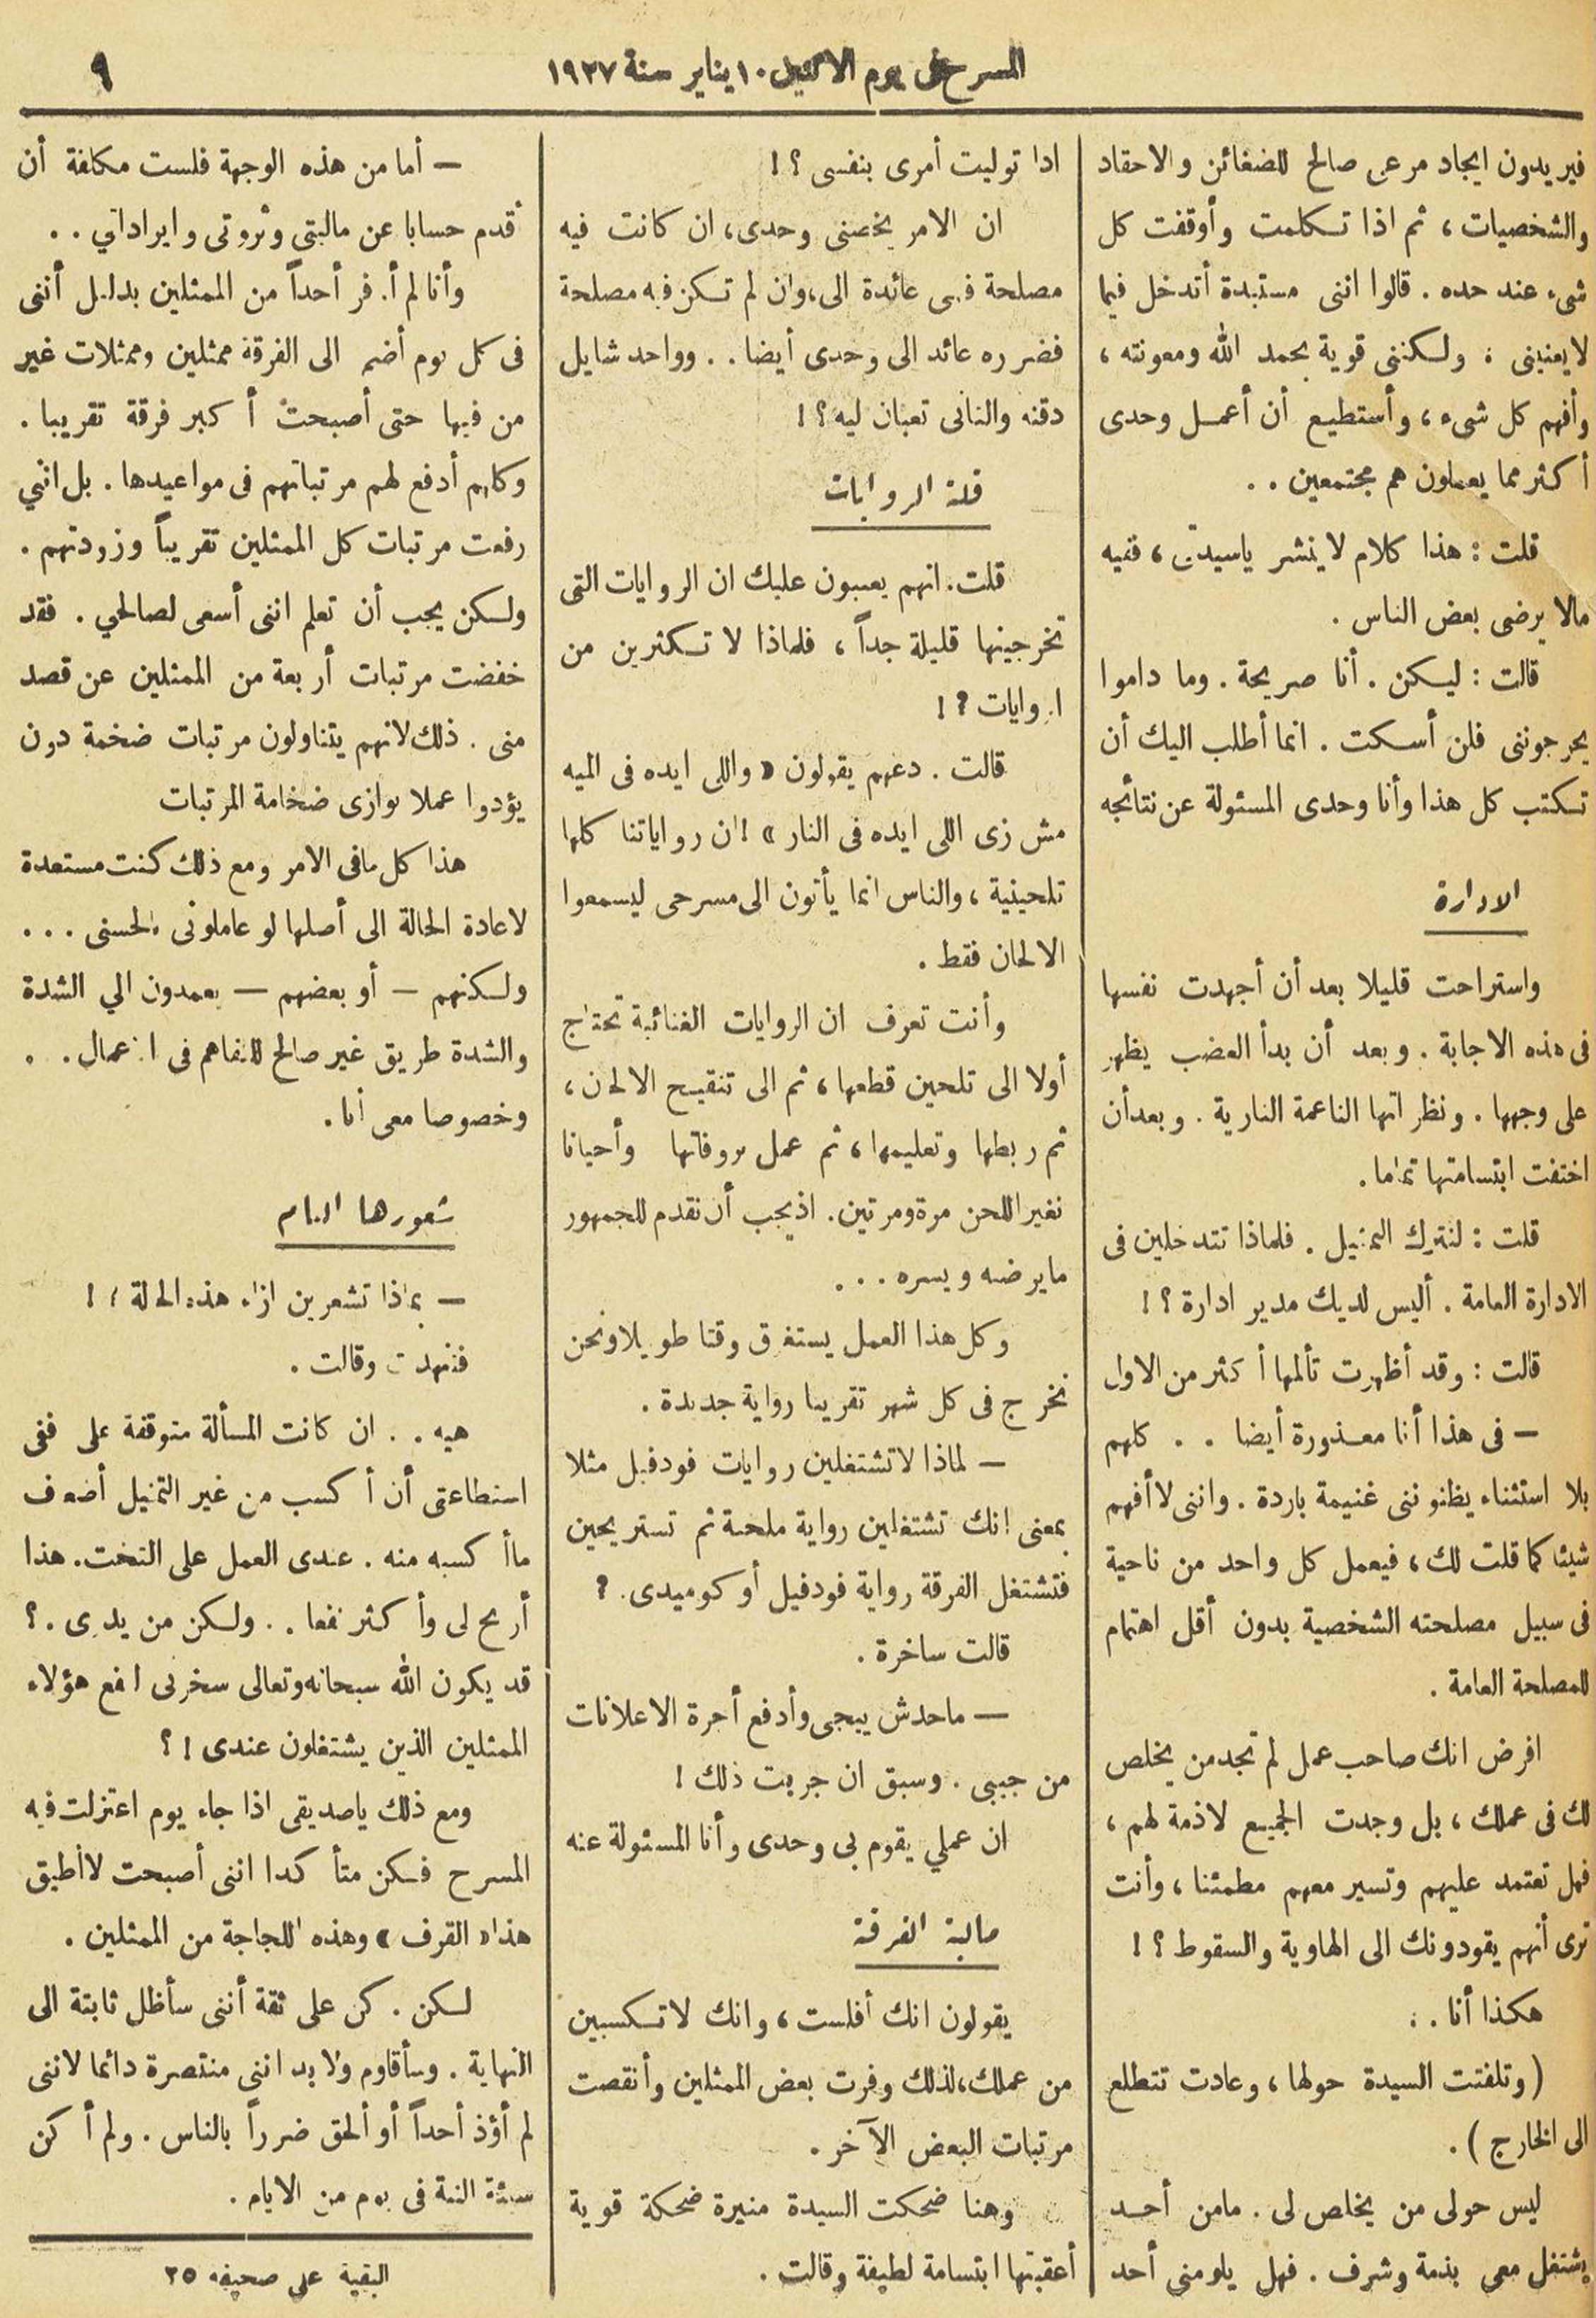 المسرح في يوم الاثنين ١٠ يناير سنة ١٩٢٧
٩
فيريدون ايجاد مرعى صالح للضغائن والاحقاد
والشخصيات، ثم اذا تكلمت وأوقفت كل
شىء عند حده. قالوا اننى مستبدة أتدخل فيما
لا يعنينى ؛ ولكننى قوية بحمد الله ومعونته ،
وأفهم كل شىء ، وأستطيع أن أعمل وحدى
أكثر مما يعملون هم مجتمعين . .
قلت : هذا كلام لا ينشر ياسيدتى ، ففيه
مالا يرضى بعض الناس .
قالت : ليكن . أنا صريحة . وما داموا
يحرجوننى فلن أسكت . انما أطلب اليك أن
تكتب كل هذا وأنا وحدى المسئولة عن نتائجه
الادارة
واستراحت قليلا بعد أن أجهدت نفسها
فى هذه الاجابة . وبعد أن بدأ الغضب يظهر
على وجهها . ونظراتها الناعمة النارية . وبعد أن
اختفت ابتسامتها تماما .
قلت : لنترك التمثيل . فلماذا تتدخلين فى
الادارة العامة . أليس لديك مدير ادارة ؟ !
قالت : وقد أظهرت تألمها أكثر من الاول
— فى هذا أنا معذورة أيضا . . كلهم
بلا استثناء يظنوننى غنيمة باردة . واننى لا أفهم
شيئا كما قلت لك ، فيعمل كل واحد من ناحية
فى سبيل مصلحته الشخصية بدون أقل اهتمام
للمصلحة العامة .
افرض انك صاحب عمل لم تجد من يخلص
لك فى عملك ، بل وجدت الجميع لاذمة لهم ،
فهل تعتمد عليهم وتسير معهم مطمئنا ، وأنت
ترى أنهم يقودونك الى الهاوية والسقوط ؟ !
هكذا أنا . .
( وتلفتت السيدة حولها ، وعادت تتطلع
الى الخارج ) .
ليس حولى من يخلص لى . مامن أحد
يشتغل معى بذمة وشرف . فهل يلومنى أحد
اذا توليت أمرى بنفسى ؟ !
ان الامر يخصنى وحدى ، ان كانت فيه
مصلحة فهى عائدة الى ، وان لم تكن فيه مصلحة
فضرره عائد الى وحدى أيضا . . وواحد شايل
دقنه والتانى تعبان ليه ؟ !
قلة الروايات
قلت . انهم يعيبون عليك ان الروايات التى
تخرجينها قليلة جداً ، فلماذا لا تكثرين من
الروايات ؟ !
قالت . دعهم يقولون « واللى ايده فى الميه
مش زى اللى ايده فى النار » ! ان رواياتنا كلها
تلحينية ، والناس انما يأتون الى مسرحى ليسمعوا
الالحان فقط .
وأنت تعرف ان الروايات الغنائية تحتاج
أولا الى تلحين قطعها ، ثم الى تنقيح الالحان ،
ثم ربطها وتعليمها ، ثم عمل بروفاتها وأحيانا
نغير اللحن مرة ومرتين . اذ يجب أن نقدم للجمهور
مايرضه ويسره . . .
وكل هذا العمل يستغرق وقتا طويلا ونحن
نخرج فى كل شهر تقريبا رواية جديدة .
— لماذا لاتشتغلين روايات فودفيل مثلا
بمعنى انك تشتغلين رواية ملحنة ثم تستريحين
فتشتغل الفرقة رواية فودفيل أو كوميدى . ؟
قالت ساخرة .
— ماحدش ييجى وأدفع أجرة الاعلانات
من جيبى . وسبق ان جربت ذلك !
ان عملي يقوم بى وحدى وأنا المسئولة عنه
مالية الفرقة
يقولون انك أفلست ، وانك لاتكسبين
من عملك ، لذلك وفرت بعض الممثلين وأنقصت
مرتبات البعض الآخر .
وهنا ضحكت السيدة منيرة ضحكة قوية
أعقبتها ابتسامة لطيفة وقالت .
— أما من هذه الوجهة فلست مكلفة أن
أقدم حسابا عن ماليتى وثروتى وايراداتي . .
وأنا لم أوفر أحداً من الممثلين بدليل أننى
فى كل يوم أضم الى الفرقة ممثلين وممثلات غير
من فيها حتى أصبحت أكبر فرقة تقريبا .
وكلهم أدفع لهم مرتباتهم فى مواعيدها . بل انني
رفعت مرتبات كل الممثلين تقريباً وزودتهم .
ولكن يجب أن تعلم اننى أسعى لصالحي . فقد
خفضت مرتبات أربعة من الممثلين عن قصد
منى . ذلك لانهم يتناولون مرتبات ضخمة دون
يؤدوا عملا يوازى ضخامة المرتبات
هذا كل مافى الامر ومع ذلك كنت مستعدة
لاعادة الحالة الى أصلها لو عاملونى بالحسنى . . .
ولكنهم — أو بعضهم — يعمدون الي الشدة
والشدة طريق غير صالح للتفاهم فى الاعمال . .
وخصوصا معى أنا .
شعورها العام
— بماذا تشعرين ازاء هذه الحالة ؟ !
فتنهدت وقالت .
هيه . . ان كانت المسألة متوقفة على ففى
استطاعتى أن أكسب من غير التمثيل أضعاف
ماأكسبه منه . عندى العمل على التخت . هذا
أربح لى وأكثر نفعا . . ولكن من يدرى . ؟
قد يكون الله سبحانه وتعالى سخرنى لنفع هؤلاء
الممثلين الذين يشتغلون عندى ! ؟
ومع ذلك ياصديقى اذا جاء يوم اعتزلت فيه
المسرح فكن متأكدا اننى أصبحت لاأطيق
هذا « القرف » وهذه اللجاجة من الممثلين .
لكن . كن على ثقة أننى سأظل ثابتة الى
النهاية . وسأقاوم ولابد اننى منتصرة دائما لاننى
لم أؤذ أحداً أو ألحق ضرراً بالناس . ولم أكن
سيئة النية فى يوم من الايام .
البقية على صحيفه ٢٥